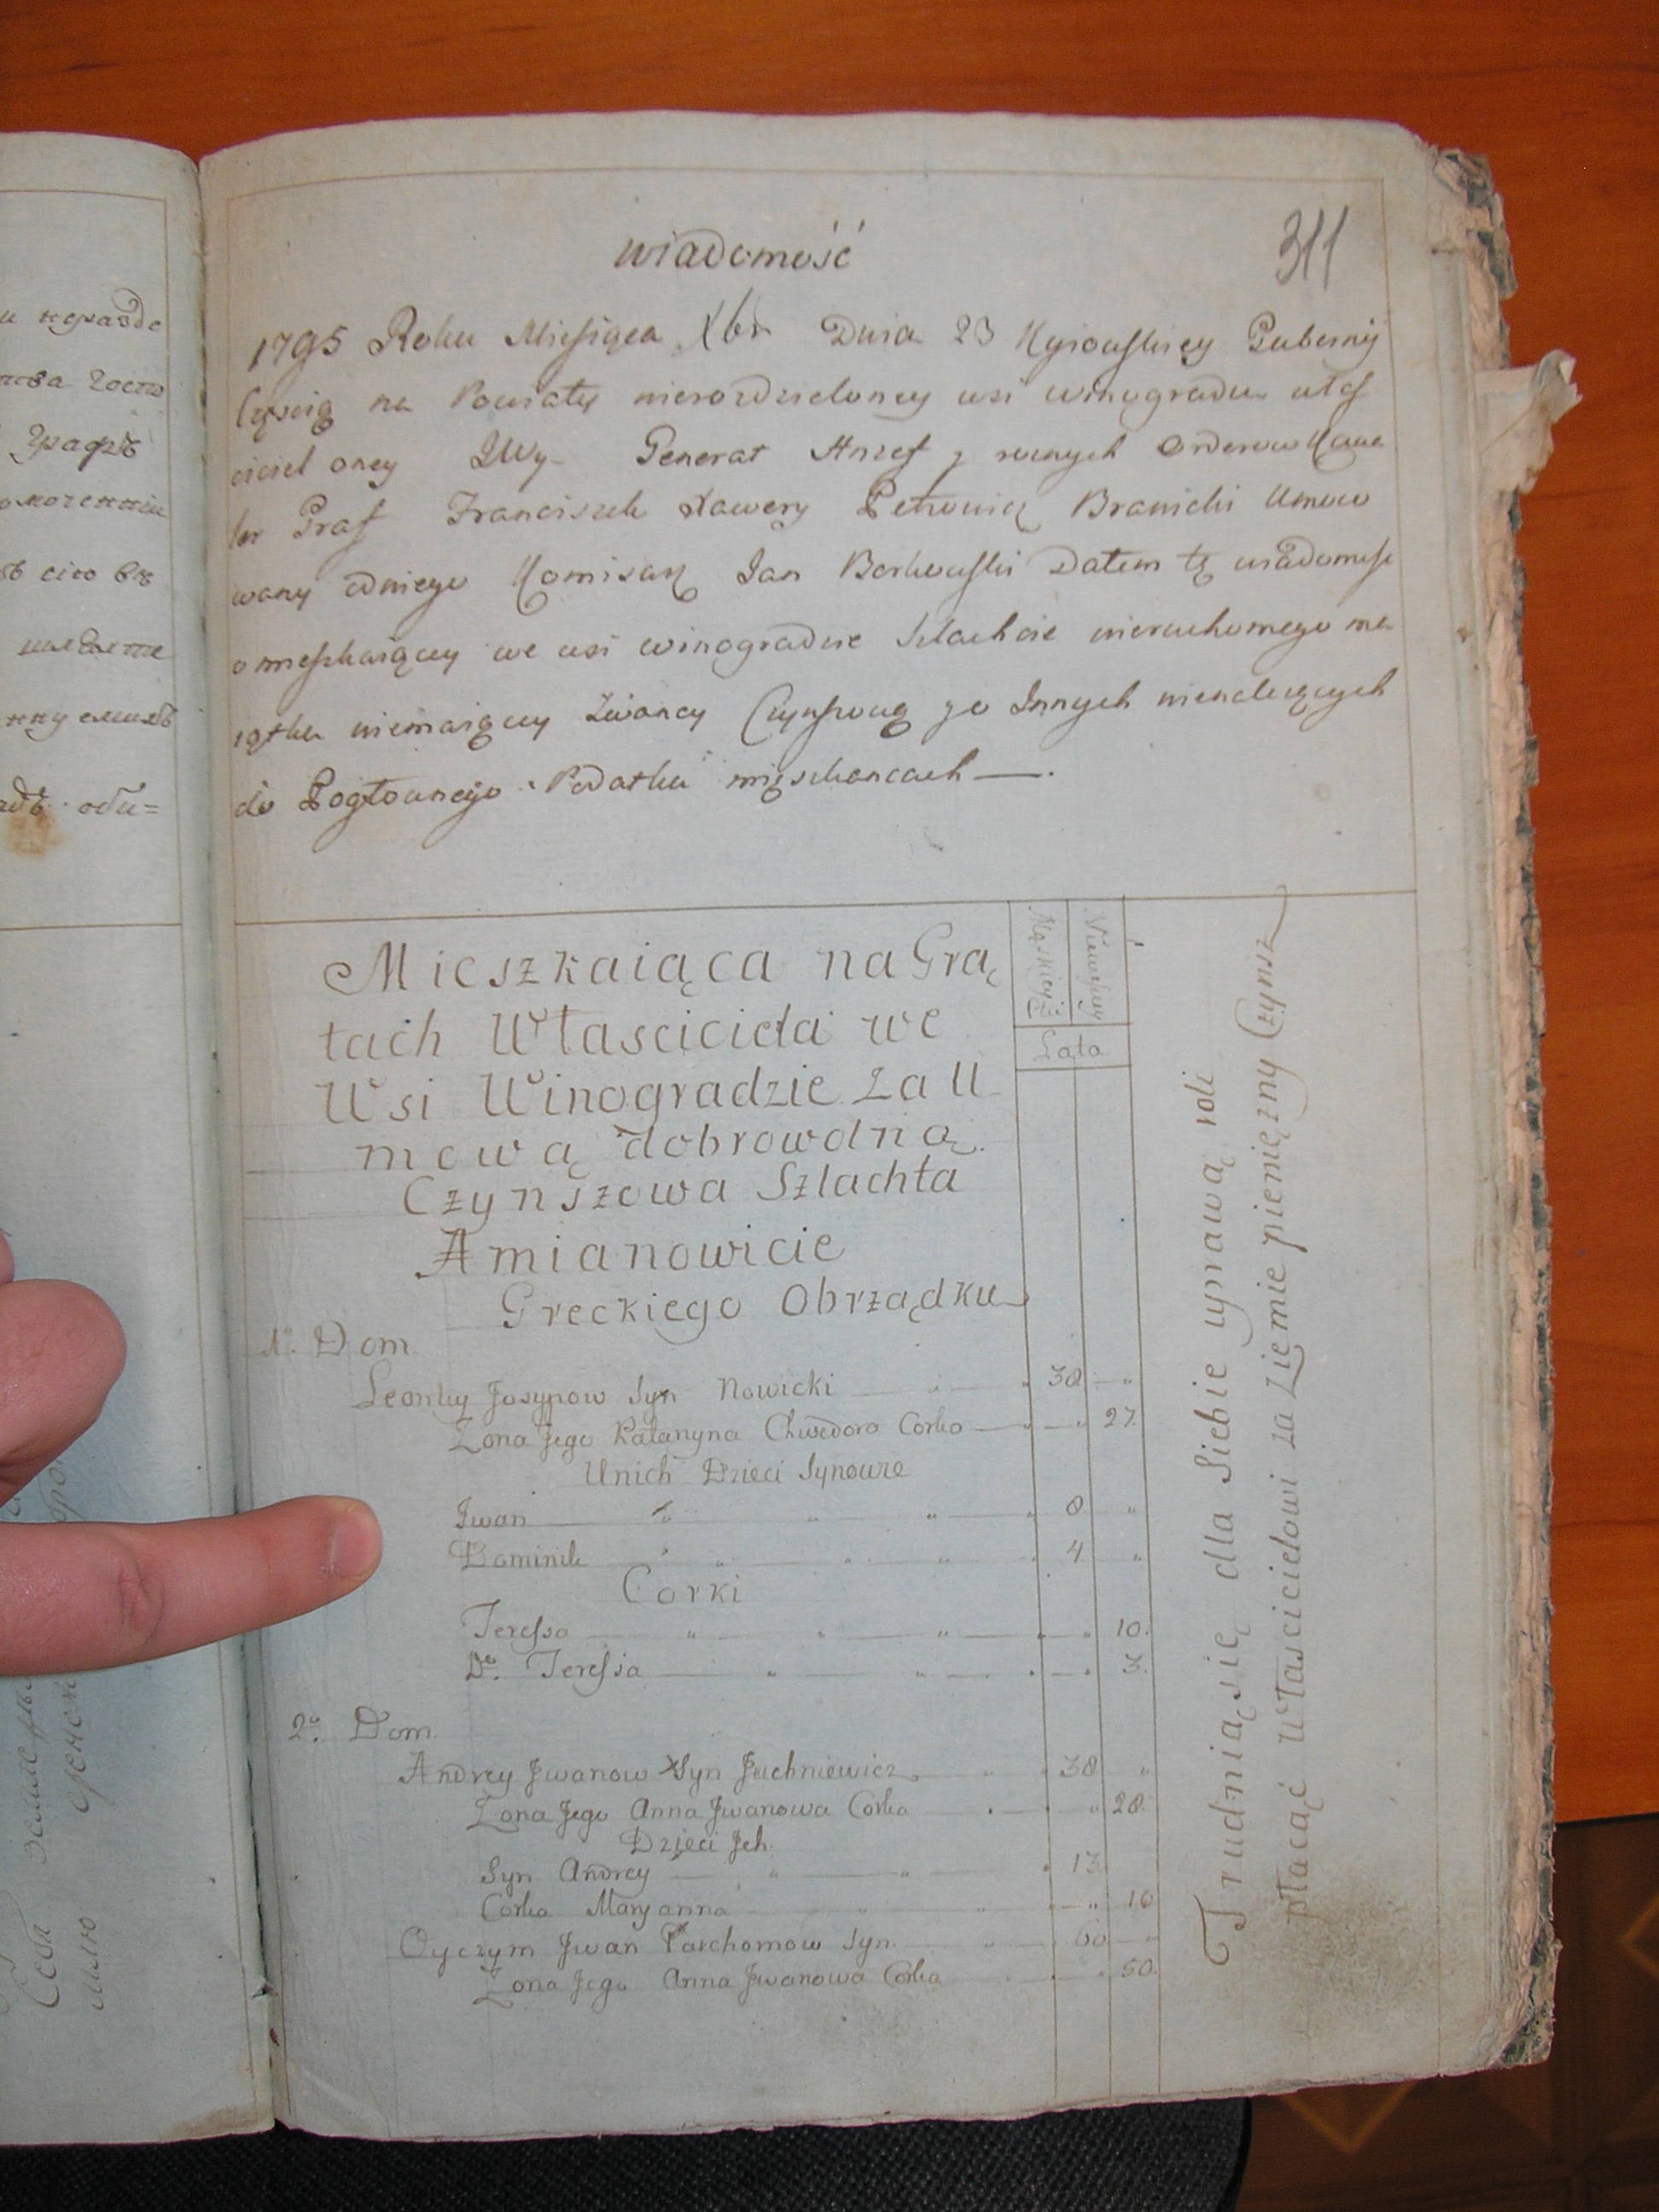 wiadomość
311
1795 Roku Miesiąca Xbr Dnia 23 Kyiowskiey Gubernij
Częścią na Powiaty nierozdzieloney wsi winogradu właś
ciciel oney JWy Generał Anszef y roznych Orderow Kawa
ler Graf Franciszek Xawery Petrowicz Branicki Umoco
wany odniego Komisarz Jan Borkowski Datem tę wiadomość
o mieszkaiącey we wsi winogradzie Szlachcie nieruchomego ma
iątku niemaiącey zwaney Czynszową y o Innych nienależących
do Pogłownego Podatku mięszkancach —.
Mieszkaiąca na Grą
tach Własciciela we
Wsi Winogradzie za U
mową dobrowolną
Czynszowa Szlachta
Amianowicie
Greckiego Obrządku
Męskiey
Niewieściey
Lata
1o. Dom
Leontey Josypow Syn Nowicki 38 "
Zona Jego Katarzyna Chwedora Corka " 27.
Unich Dzieci Synowie
Jwan 8 "
Dominik 4 "
Corki
Teressa " 10.
Do. Teressia "
2o. Dom.
Andrey Jwanow Syn Juchniewicz 38 "
Zona Jego Anna Jwanowa Corka " 28.
Dzieci Jch.
Syn Andrey 13
Corka Maryanna " 16
Oyczym Jwan Parchomow Syn. 60 "
Zona Jego Anna Jwanowa Corka " 50.
Trudnią się dla Siebie uprawą roli
płacąć Włascicielowi za Ziemie pieniężny Czynsz